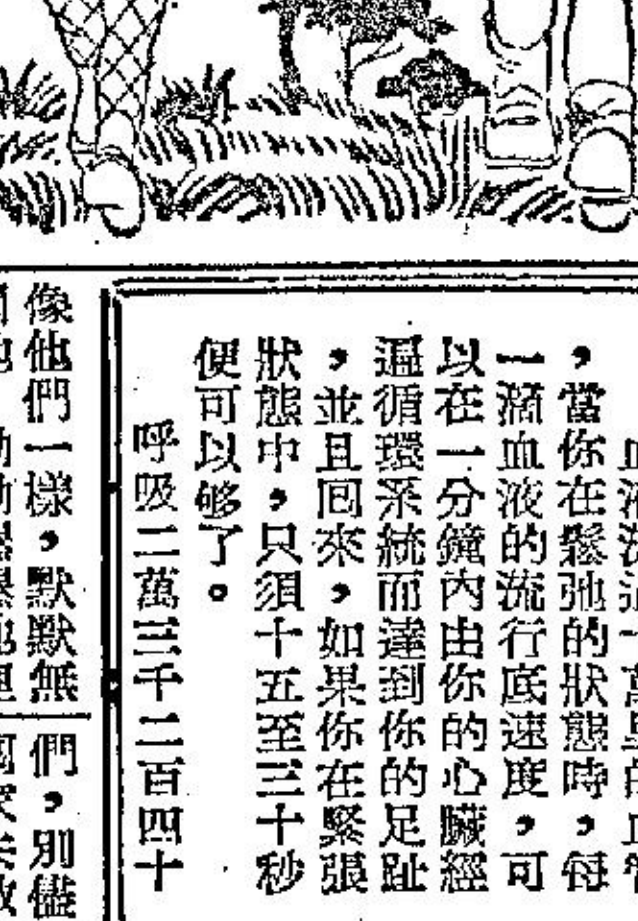 ，當你在鬆弛的狀態時，每
一滴血液的流行底速度，可
以在一分鐘內由你的心臟經
遍循環系統而達到你的足趾
，並且囘來，如果你在緊張
狀態中，只須十五至三十秒
便可以够了。
呼吸二萬三千二百四十
像他們一樣，默默無
們，別儘